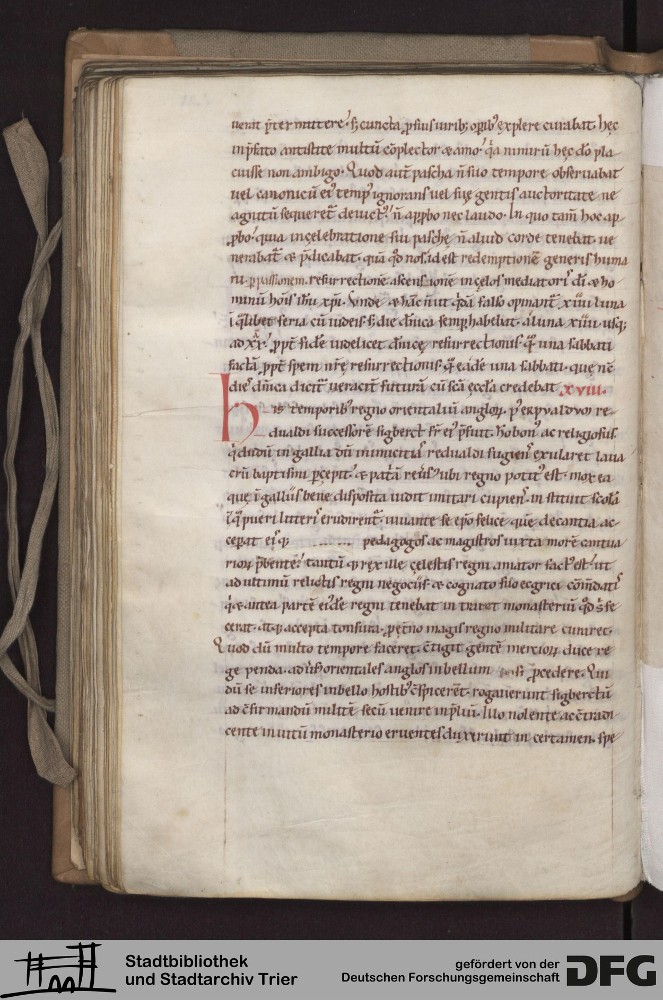 uerat p̄termittere. s; cuncta p suis uirib; opib; explere curabat. hec
in p̄fato antistite multū cōplector & amo. q̇a nimirū hec dō pla
cuisse non ambigo. Quod aut̄ pascha n̄ suo tempore obseruabat
uel canonicū ei' temp' ignorans uel suę gentis auctoritate ne
agnitū sequeret̄ deuict'. n̄ approbo nec laudo. In quo tam̄ hoc ap
p̱bo. quia in celebratione sui paschę n̄ aliud corde tenebat. ue
nerabat̄ & p̄dicabat. quā qd̄ nos. id est redemptionē generis huma
ni. p passionem. resurrectionē. ascensionē in celos mediatoris dī & ho
minū hōis ihū xp̄i. Unde & hanc n̄ ut qdā falso opinant̄ xiiii luna
ī q̇libet feria cū iudeis. s; die dn̄ica semp habebat. a luna xiiii usq;
ad xx. p̱pt̄ fidē uidelicet dn̄icę resurrectionis. qā una sabbati
factā p̱pt̄ spem nr̄ę resurrectionis. qā eādē una sabbati. que nc̄
die' dn̄ica dicit̄ ueracit̄ futurā cū scā eccła credebat. xviii.
his temporib' regno orientaliū anglor. p' erpualdum re
dualdi successorē sigberct fr̄ ei' p̄fuit. hō bon' ac religiosus.
q̇ dudū in gallia dū inimicitias redualdi fugiens exularet laua
crū baptismi p̱cepit. & patriā reuers' ubi regno potit' est. mox ea
que ī gallıis bene disposita uidit imitari cupiens. instituit scolā
ī q̇ pueri litteris erudirent̄. iuuante se ep̄o felice. quē de cantia ac
ceperat eisq; pedagogos ac magistros iuxta morē cantua
rior p̱bente. tantū q; rex ille celestis regni amator fact' est. ut
ad ultimū relictis regni negociis. & cognato suo ecgrici cōmdatis
q̇ & antea partē eiusdē regni tenebat intraret monasteriū qd̄ s̄ fe
cerat. atq; accepta tonsura. p̱ etn̄o magis regno militare curaret.
Quod dū multo tempore faceret. c̄tigit gentē mercior duce re
ge penda. aduers' orientales anglos in bellum p̱cedere. Qui
dū se inferiores in bello hostib' c̄spicerent. rogauerunt sigberctū
ad c̄firmandū militē secū uenire in p̱liū. Illo nolente ac c̄tradi
cente inuitū monasterio eruentes duxerunt in certamen. spe
Stadtbibliothek
und Stadtarchiv Trier
gefördert von der
Deutschen Forschungsgemeinschaft
DFG